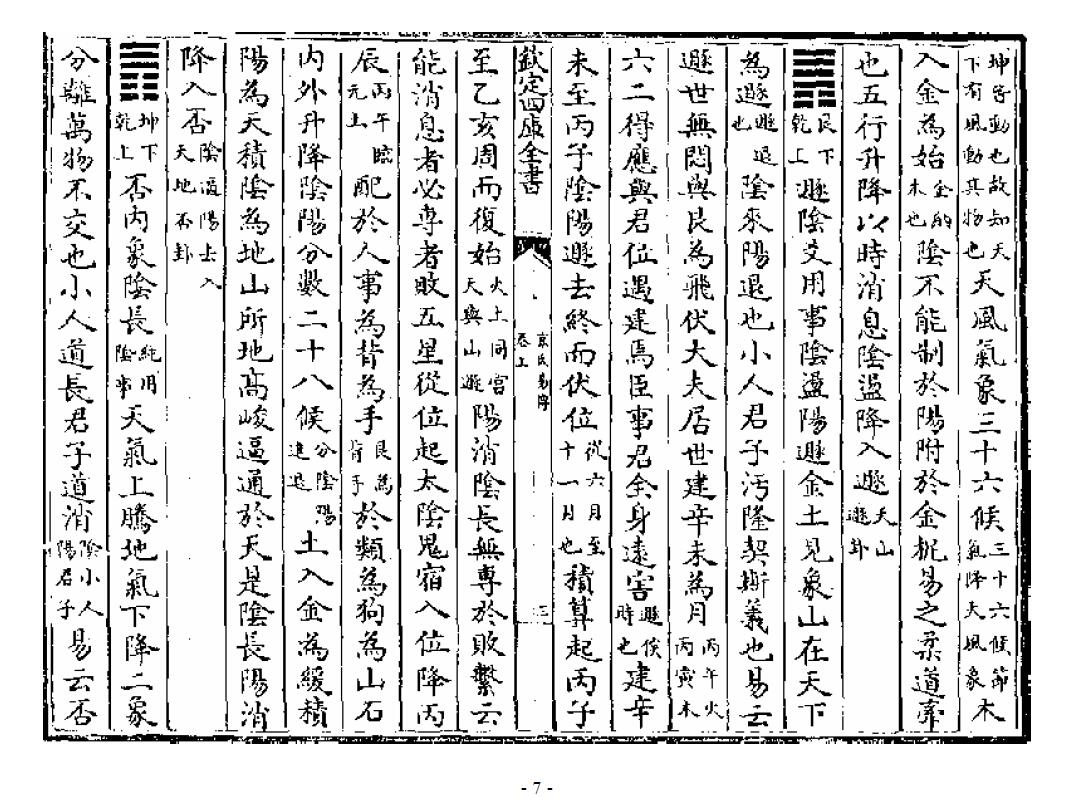 坤皆動也故知天下有風動其物也天風氣象三十六候三十六候節氣降大風象木
入金為始金納木也陰不能制於陽附於金柅易之柔道牽
也五行升降以時消息陰盪降入遯天山遯卦
䷠艮下乾上遯陰爻用事陰盪陽遯金土見象山在天下
為遯遯退也陰來陽退也小人君子污隆契斯義也易云
遯世無悶與艮為飛伏大夫居世建辛未為月丙午火丙寅木
六二得應與君位遇建焉臣事君全身遠害遯俟時也建辛
未至丙子陰陽遯去終而伏位從六月至十一月也積算起丙子
欽定四庫全書
京氏易傳
卷上
三
至乙亥周而復始火土同宮天與山遯陽消陰長無專於敗繫云
能消息者必專者敗五星從位起太陰鬼宿入位降丙
辰丙午臨元土配於人事為背為手艮為背手於類為狗為山石
內外升降陰陽分數二十八候分陰陽進退土入金為緩積
陽為天積陰為地山所地高峻逼通於天是陰長陽消
降入否陰逼陽去入天地否卦
䷋坤下乾上否內象陰長純用陰事天氣上騰地氣下降二象
分離萬物不交也小人道長君子道消陰小人陽君子易云否
- 7 -